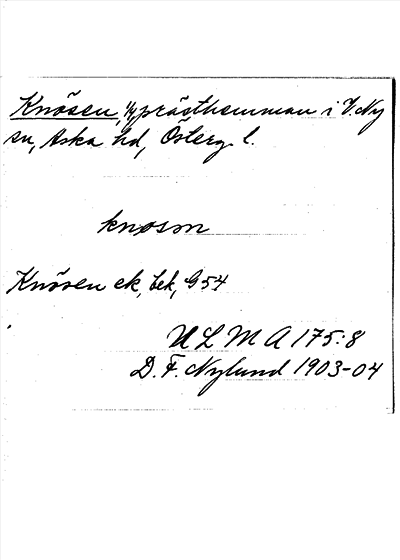 Knösen, 1/4 prästhemman i V. Ny
sn, Aska hd, Österg. l.
knøsøn
Knösen ek, bek, G 54
ULMA 175:8
D. F. Nylund 1903-04